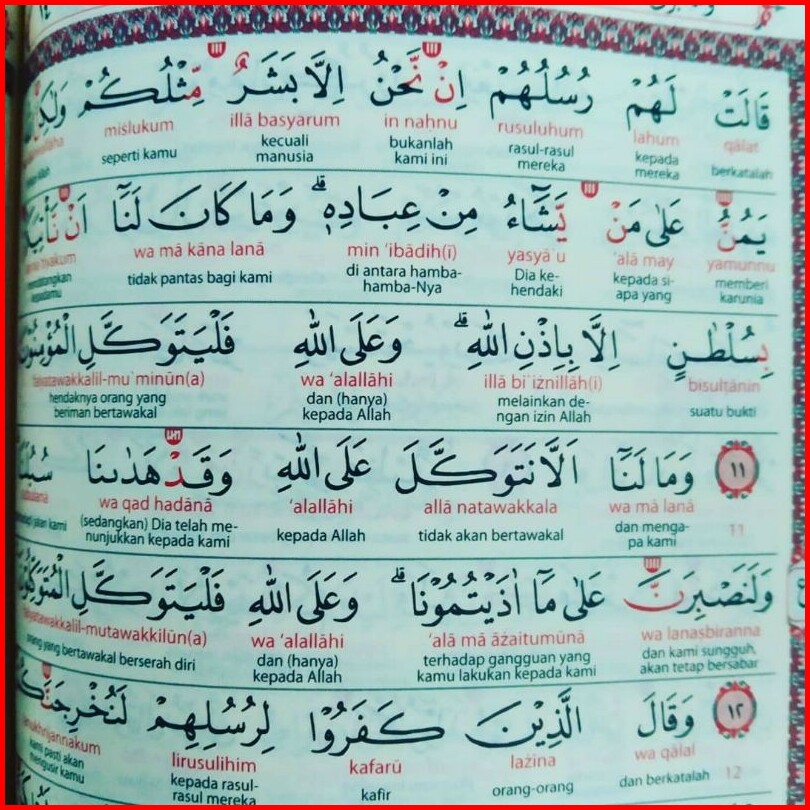 قَالَتْ لَهُمْ رُسُلُهُمْ اِنْ نَّحْنُ اِلَّا بَشَرٌ مِّثْلُكُمْ وَلٰكِنَّ
qālat lahum rusuluhum in naḥnu illā basyarum mislukum
berkatalah
kepada
mereka
rasul-rasul
mereka
bukanlah
kami ini
kecuali
manusia
seperti kamu
يَمُنُّ عَلٰى مَنْ يَّشَاۤءُ مِنْ عِبَادِهٖۗ وَمَا كَانَ لَنَآ اَنْ نَّأْتِيَكُمْ
yamunnu 'alā may yasyā`u min 'ibādih(ī) wa mā kāna lanā
memberi
karunia
kepada si-
apa yang
Dia ke-
hendaki
di antara hamba-
hamba-Nya
tidak pantas bagi kami
mendatangkan
kepadamu
بِسُلْطٰنٍ اِلَّا بِاِذْنِ اللّٰهِ ۗ وَعَلَى اللّٰهِ فَلْيَتَوَكَّلِ الْمُؤْمِنُوْنَ
bisulṭānin illā bi`iżnillāh(i) wa 'alallāhi falyatawakkalil-mu`minūn(a)
suatu bukti
melainkan de-
ngan izin Allah
dan (hanya)
kepada Allah
hendaknya orang yang
beriman bertawakal
١١ وَمَا لَنَآ اَلَّا نَتَوَكَّلَ عَلَى اللّٰهِ وَقَدْ هَدٰىنَا سُبُلَنَا
11 wa mā lanā allā natawakkala 'alallāhi wa qad hadānā subulanā
dan menga-
pa kami
tidak akan bertawakal
kepada Allah
(sedangkan) Dia telah me-
nunjukkan kepada kami
jalan kami
وَلَنَصْبِرَنَّ عَلٰى مَآ اٰذَيْتُمُوْنَا ۗ وَعَلَى اللّٰهِ فَلْيَتَوَكَّلِ الْمُتَوَكِّلُوْنَ
wa lanasbiranna 'alā mā āżaitumūnā wa 'alallāhi falyatawakkalil-mutawakkilūn(a)
dan kami sungguh,
akan tetap bersabar
terhadap gangguan yang
kamu lakukan kepada kami
dan (hanya)
kepada Allah
orang yang bertawakal berserah diri
١٢ وَقَالَ الَّذِيْنَ كَفَرُوْا لِرُسُلِهِمْ لَنُخْرِجَنَّكُمْ
12 wa qālal lażīna kafarū lirusulihim lanukhrijannakum
dan berkatalah
orang-orang
kafir
kepada rasul-
rasul mereka
kami pasti akan
mengusir kamu